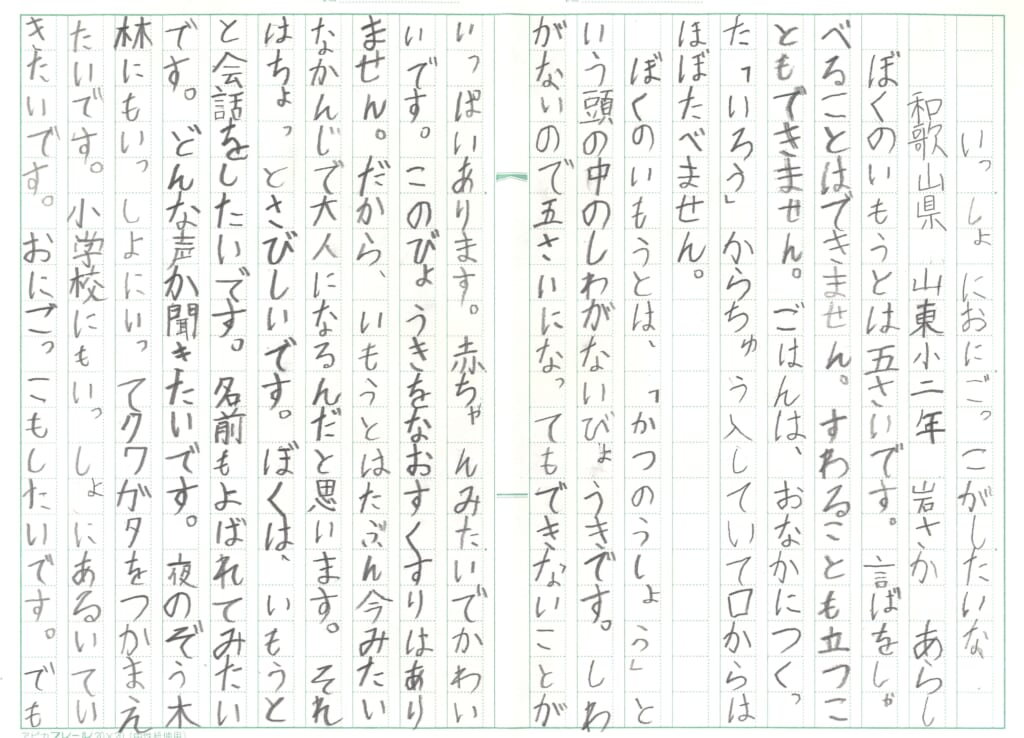 いっしょにおにごっこがしたいな
和歌山県　山東小二年　岩さか　あらし
ぼくのいもうとは五さいです。言ばをしゃ
べることはできません。すわることも立つこ
ともできません。ごはんは、おなかにつくっ
た「いろう」からちゅう入していて口からは
ほぼたべません。
ぼくのいもうとは、「かつのうしょう」と
いう頭の中のしわがないびょうきです。しわ
がないので五さいになってもできないことが
いっぱいあります。赤ちゃんみたいでかわい
いです。このびょうきをなおすくすりはあり
ません。だから、いもうとはたぶん今みたい
なかんじで大人になるんだと思います。それ
はちょっとさびしいです。ぼくは、いもうと
と会話をしたいです。名前もよばれてみたい
です。どんな声か聞きたいです。夜のぞう木
林にもいっしよにいってクワガタをつかまえ
たいです。小学校にもいっしょにあるいてい
きたいです。おにごっこもしたいです。でも
アピカ フレール(20×20)(中性紙使用)